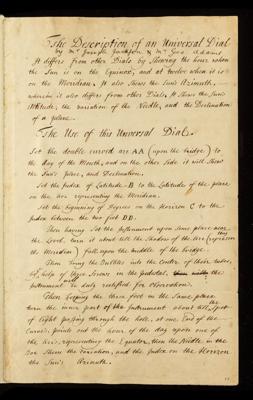 The Description of an Universal Dial
by Mr Joseph Jackson & Mr Geo Adams
It differs from other Dials by shewing the hour when
the Sun is on the Equinox, and at twelve when it is
on the Meridian. It also shews the Sun's Azimuth,
wherein it also differs from other Dials. It shews the Sun's
Altitude, the variation of the Needle, and the Declination
of a plane.
The Use of this Universal Dial.
Set the double curved arc AA (upon the bridge) to
the day of the Month, and on the other side it will shew
the Sun's place, and Declination.
Set the Index of Latitude B to the Latitude of the place
on the arc representing the Meridian.
Set the beginning of Degrees on the Horizon C to the
Index between the two feet DD.
Then having set the Instrument upon some place near
the Level, turn it about till the Shadow of the Arc (representing
the Meridian) fall upon the middle of the bridge.
Then bring the Bubbles into the Center of their tubes,
by help of three Screws in the pedestal,
Instrument is duly rectified for observation.
Then keeping the three feet in the Same place
turn the inner part of the Instrument about till the Spot
of Light passing through the hole, at one End of the
Curve, points out the hour of the day upon one of
the Arcs, representing the Equator, then the Needle in the
Box Shews the Variation, and the Index on the Horizon
the Sun's Azimuth.